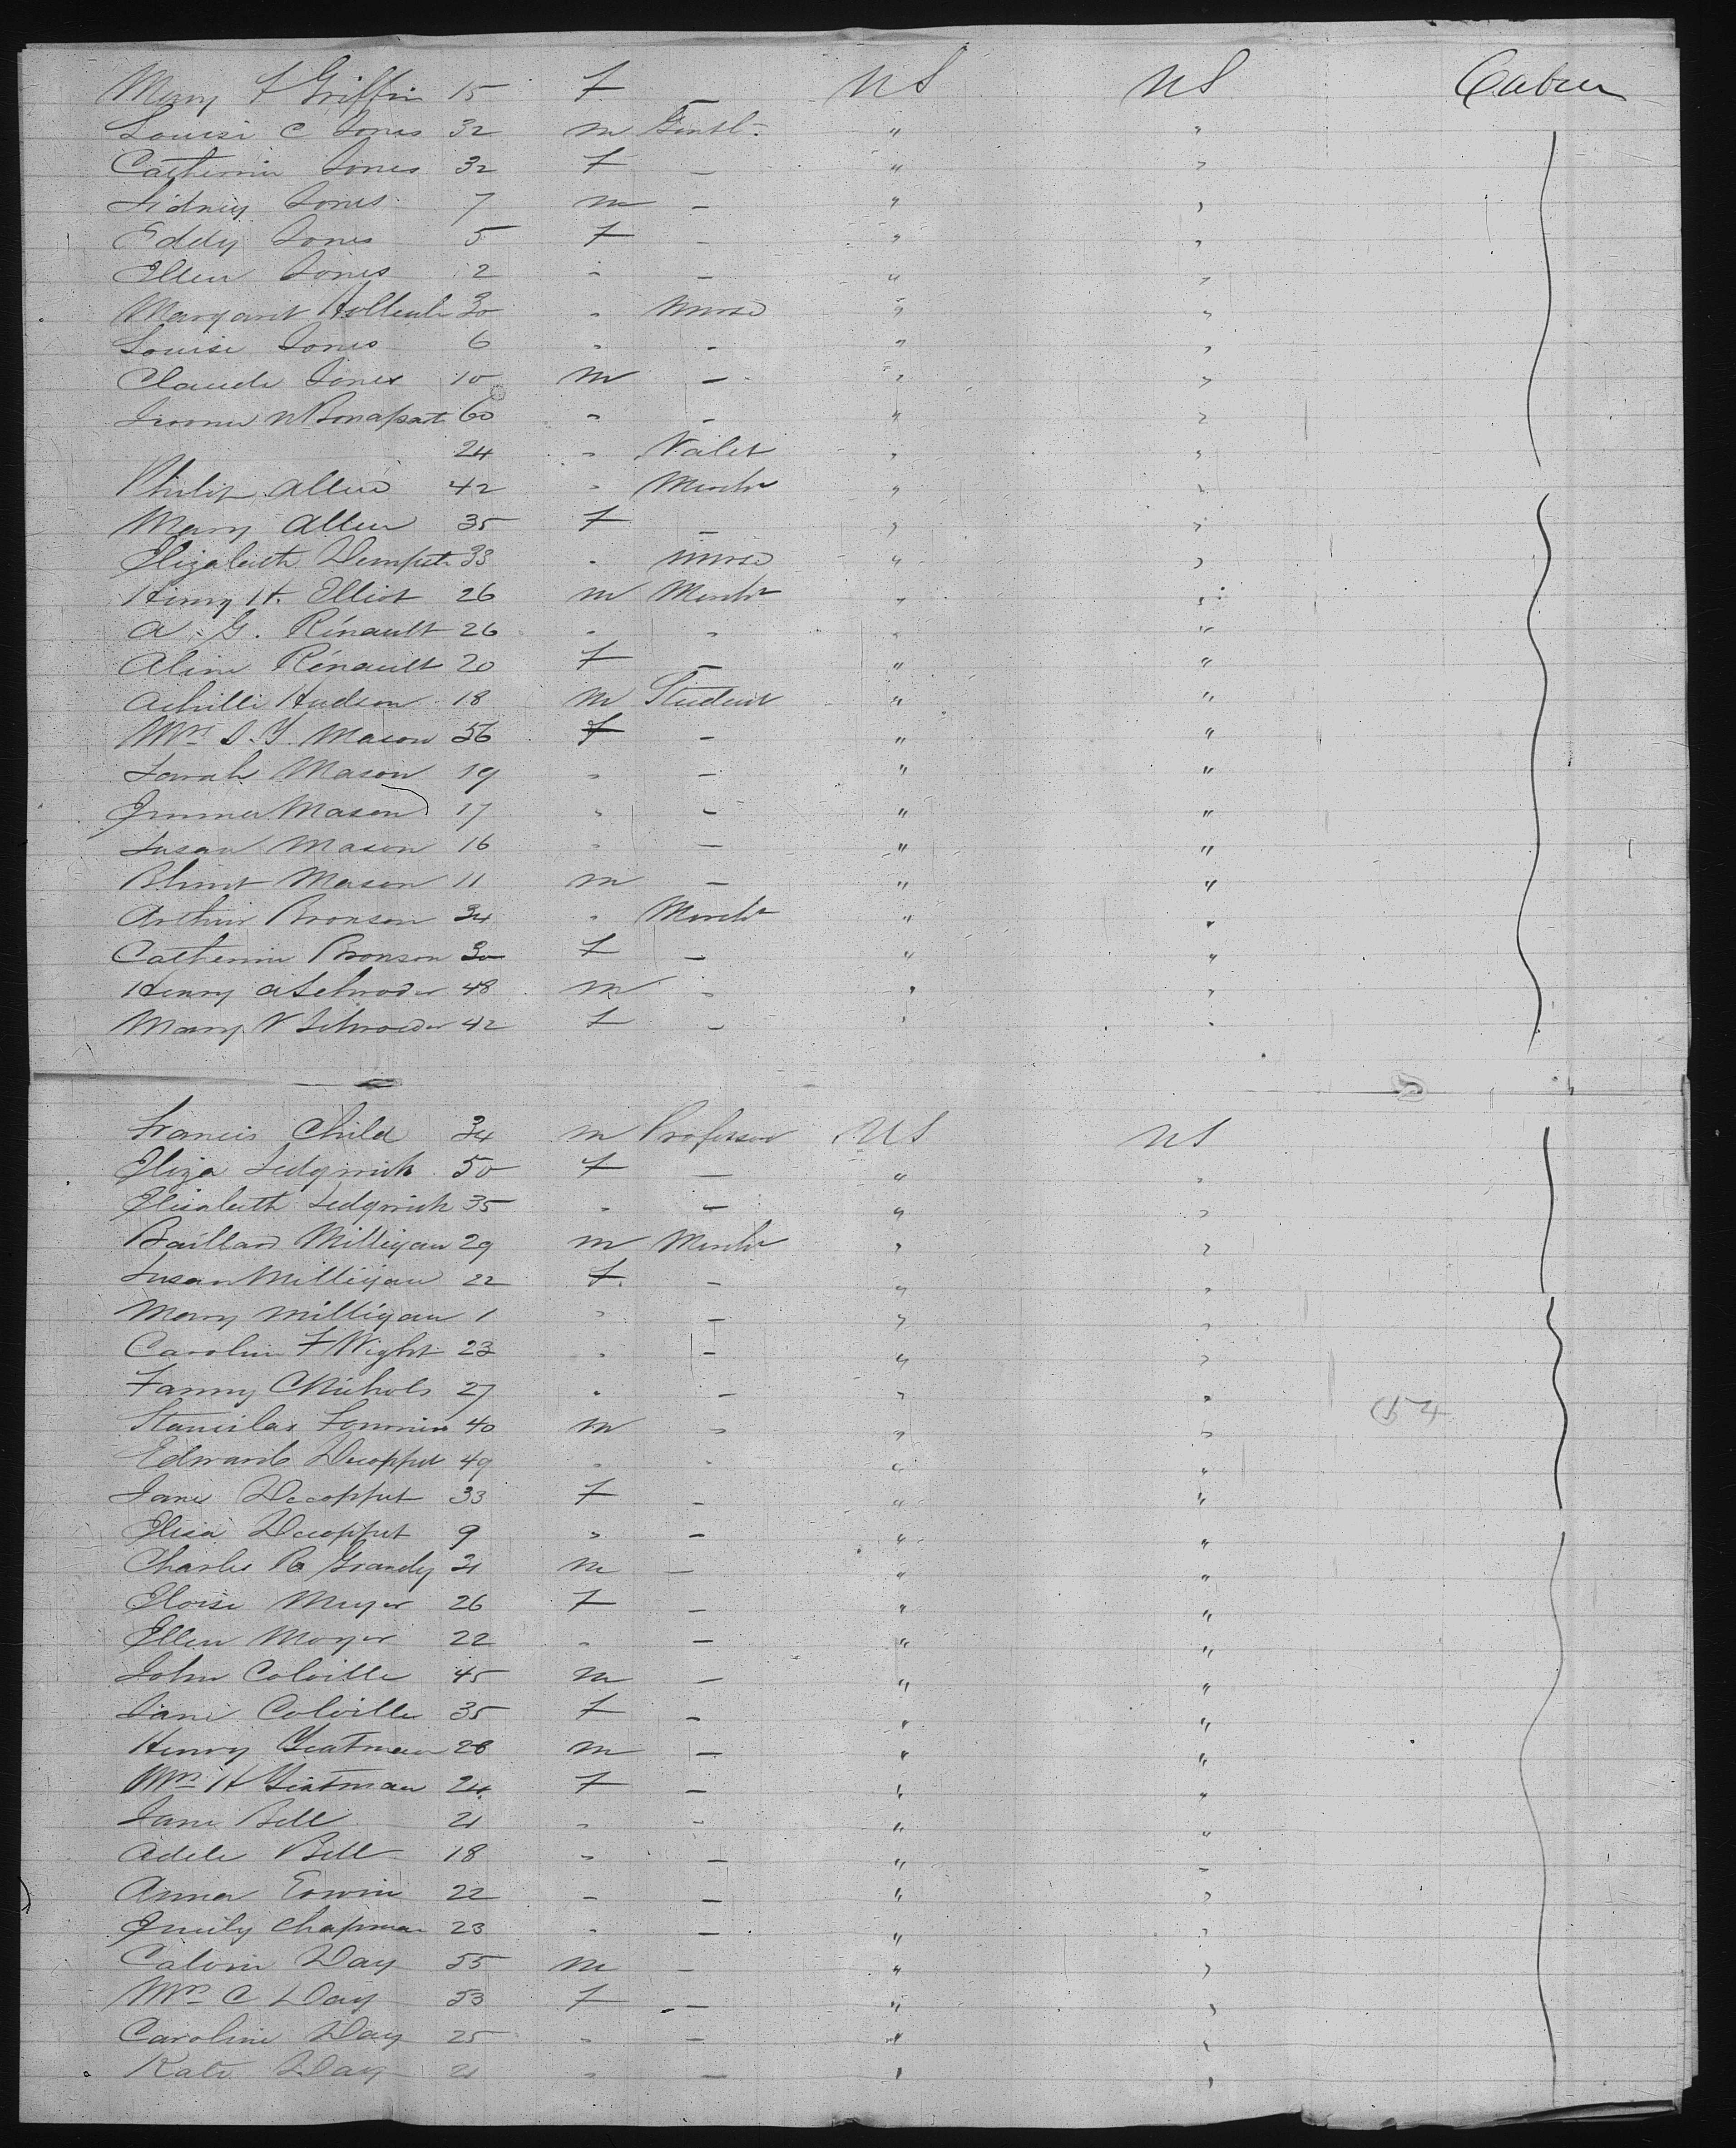 Mary F Griffin 15 f — US US Cabin
Louisi C Jones 32 m Gentl. " "
Catherine Jones 32 f — " "
Sidney Jones 7 m — " "
Eddy Jones 5 f — " "
Ellen Jones 2 " — " "
Margaret 30 " nurse " "
Louise Jones 6 " — " "
Claude Jones 10 m — " "
N Bonapart 60 " — " "
24 " Valet " "
Philip Allen 42 " Mercht " "
Mary Allen 35 f — " "
Elizabeth Dempster 33 " nurse " "
Henry H. Elliot 26 m Mercht " "
A. G. Rénault 26 " " " "
Aline Rénault 20 f — " "
Achille Hudson 18 m Student " "
Mrs. J. Y. Mason 56 f — " "
Sarah Mason 19 " — " "
Emma Mason 17 " — " "
Susan Mason 16 " — " "
Mason 11 m — " "
Arthur Bronson 34 " Mercht " "
Catherine Bronson 30 f — " "
Henry A Schroder 48 m " " "
Mary V Schroeder 42 f — " "
Francis Child 34 m Professor US US
Eliza Sedgwick 50 f — " "
Elisabeth Sedgwick 35 " — " "
Baillard Milligan 29 m Mercht " "
Susan Milligan 22 f. — " "
Mary Milligan 1 " — " "
Caroline F Wight 23 " — " "
Fanny C Nichols 27 " — " "
Stanislas 40 m " " "
Edward Decoppet 49 " " " "
Jane Decoppet 33 f — " "
Elisa Decoppet 9 " — " "
Charles R Grandy 31 m — " "
Eloise Meyer 26 f — " "
Ellen Moyer 22 " — " "
John Colville 45 m — " "
Jane Colville 35 f — " "
Henry Yeatman 28 m — " "
Mrs. H Yeatman 24 f — " "
Jane Bell 21 " — " "
Adele Bell 18 " — " "
Anna Erwin 22 " — " "
Emily Chapman 23 " — " "
Calvin Day 55 m — " "
Mrs. C Day 53 f — " "
Caroline Day 25 " — " "
Kate Day 21 " — " "